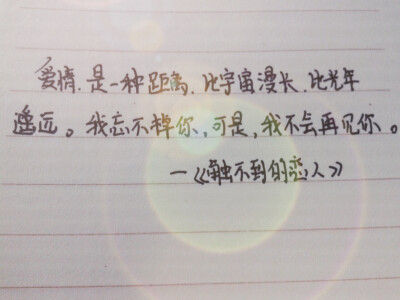 爱情.是一种距离.比宇宙漫长.比光年
遥远。我忘不掉你,可是,我不会再见你。
—《触不到的恋人》